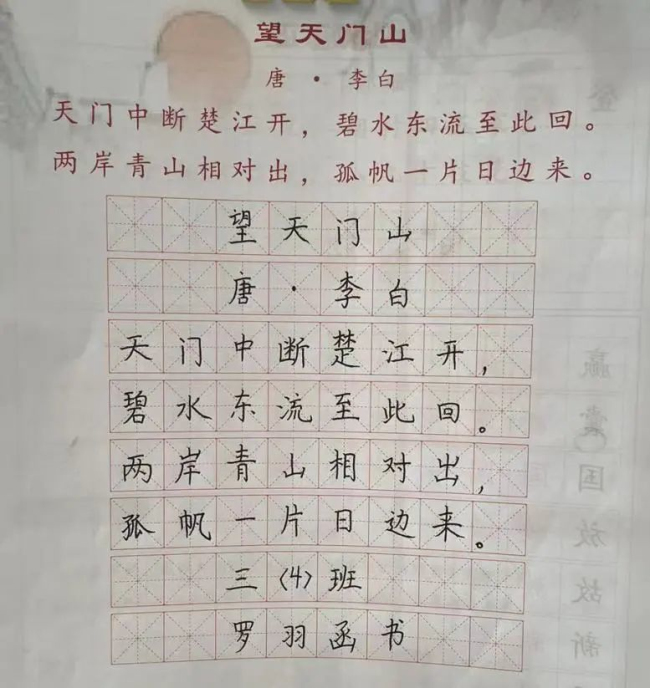 望天门山
唐·李白
天门中断楚江开，碧水东流至此回。
两岸青山相对出，孤帆一片日边来。
望天门山
唐·李白
天门中断楚江开，
碧水东流至此回。
两岸青山相对出，
孤帆一片日边来。
三（4）班
罗羽函书